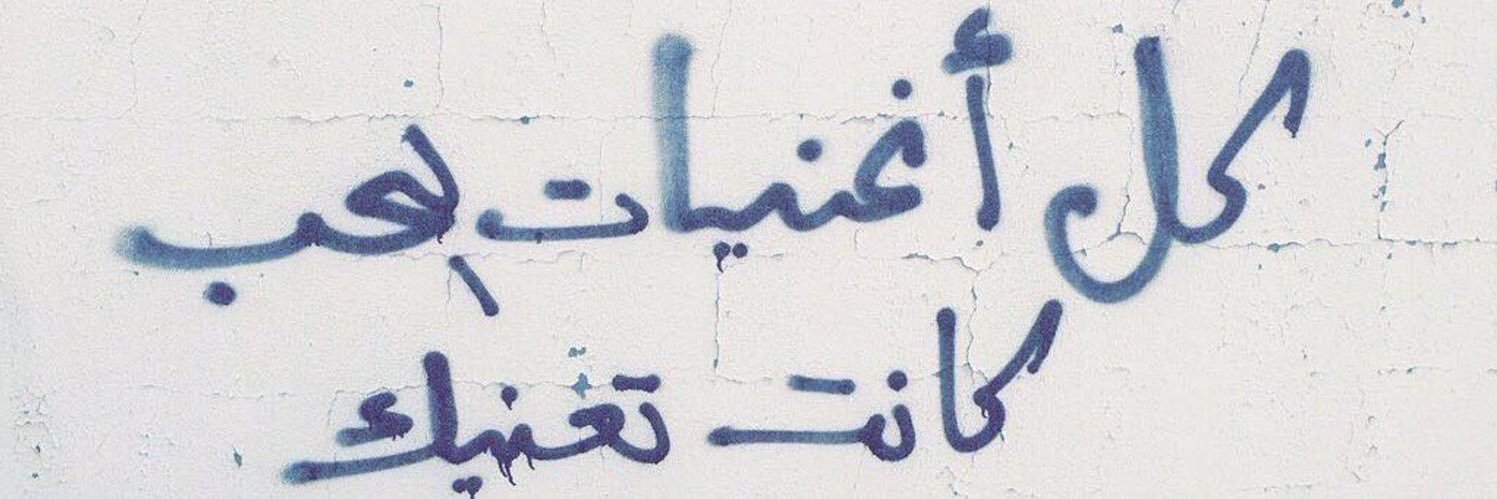 كل أغنيات الحب
كانت تعنيك